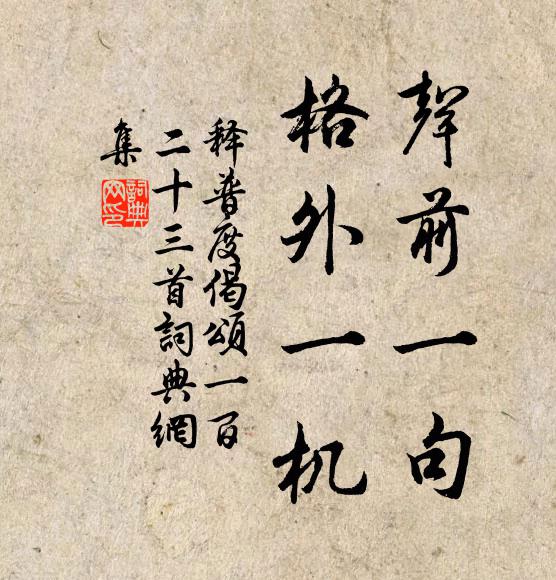 聲前一句
格外一机
释普度偈頌一百
二十三首詞典網
集
詞典
网印